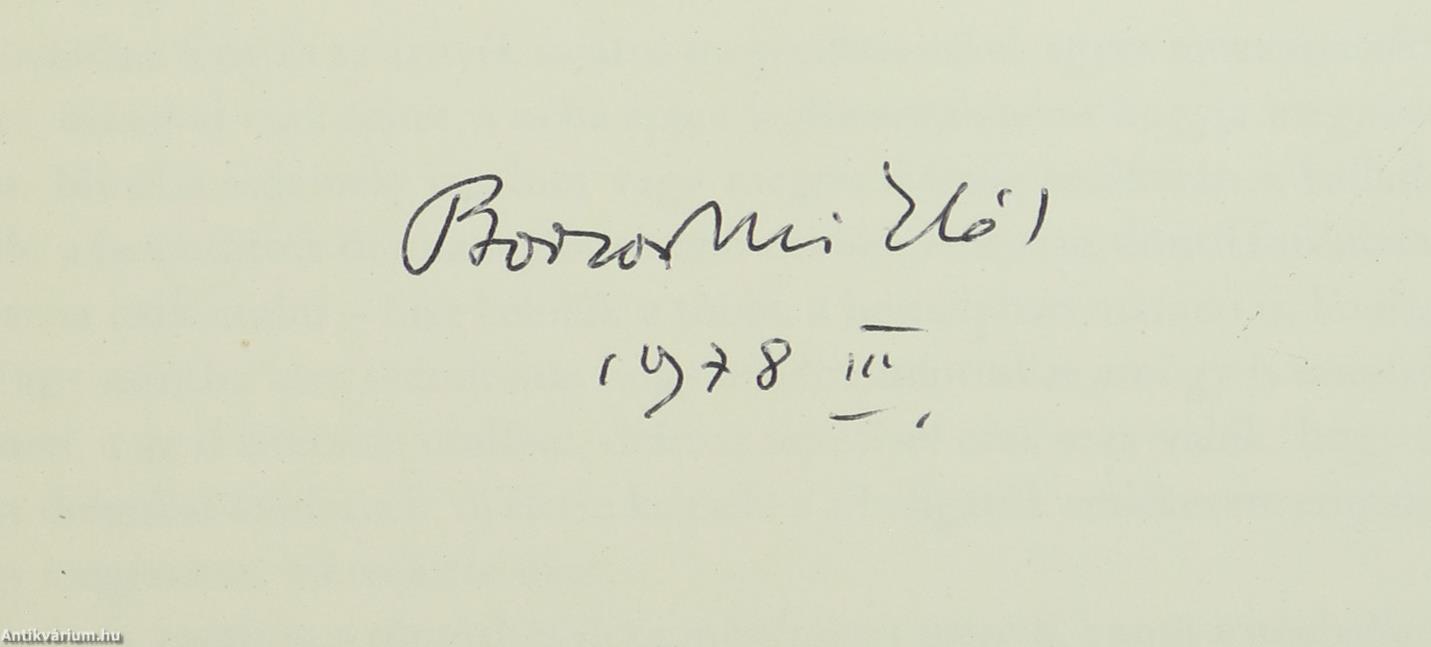 Borsos Miklós
1978 III.
Antikvárium.hu